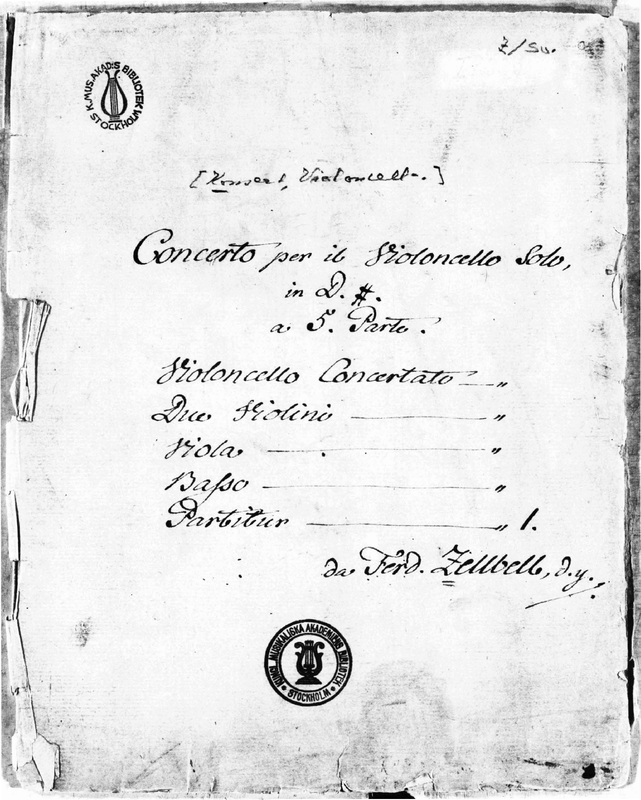 Z/Sv.
K. MUS. AKAD:S BIBLIOTEK
STOCKHOLM
[Konsert, Violoncell.]
Concerto per il Violoncello Solo,
in D. #.
a 5. Parte.
Violoncello Concertato — „
Due Violini — „
Viola — „
Basso — „
Partitur — „ 1.
da Ferd. Zellbell, d.y.
KUNGL. MUSIKALISKA AKADEMIENS BIBLIOTEK
• STOCKHOLM •